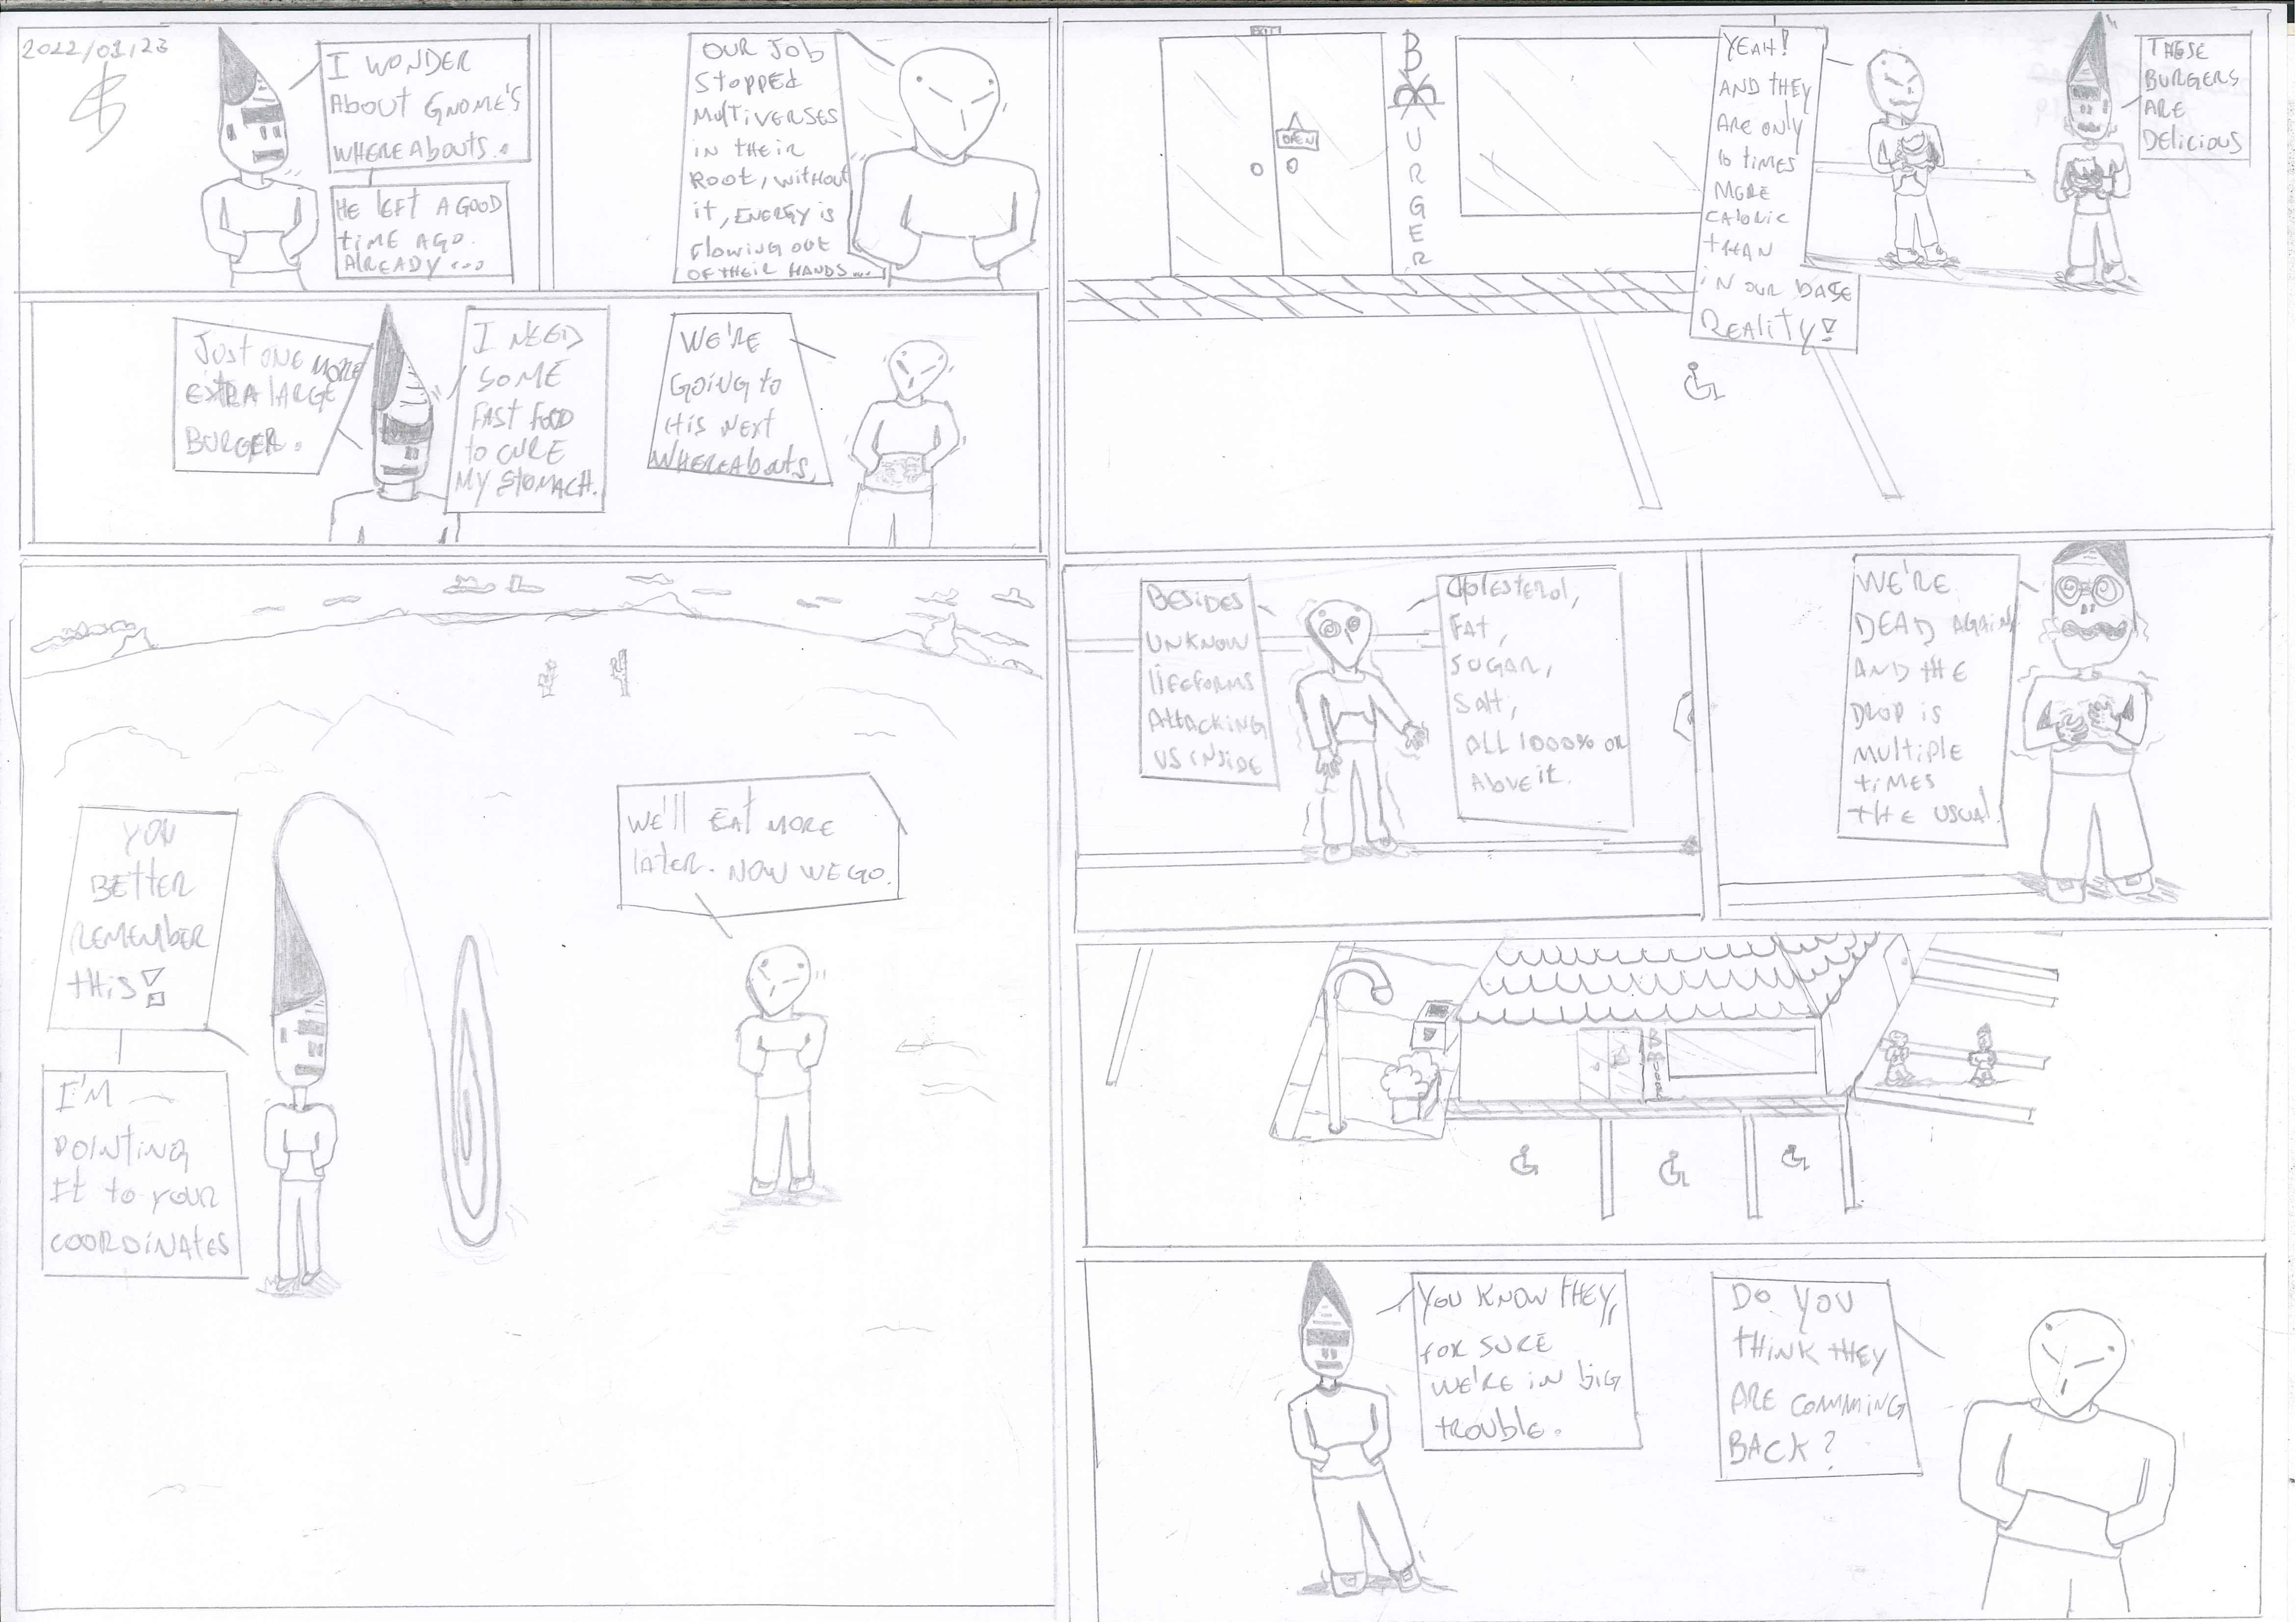 2022/01/23
I WONDER
ABOUT GNOME'S
WHEREABOUTS..
HE LEFT A GOOD
TIME AGO.
ALREADY...
OUR JOB
STOPPED
MULTIVERSES
IN THEIR
ROOT, WITHOUT
IT, ENERGY IS
FLOWING OUT
OF THEIR HANDS...
JUST ONE MORE
EXTRA LARGE
BURGER.
I NEED
SOME
FAST FOOD
TO CURE
MY STOMACH.
WE'RE
GOING TO
HIS NEXT
WHEREABOUTS.
YOU
BETTER
REMEMBER
THIS!
I'M
POINTING
IT TO YOUR
COORDINATES
WE'LL EAT MORE
LATER. NOW WE GO.
EXIT
OPEN
B
U
R
G
E
R
YEAH!
AND THEY
ARE ONLY
10 TIMES
MORE
CALORIC
THAN
IN OUR BASE
REALITY!
THESE
BURGERS
ARE
DELICIOUS
BESIDES
UNKNOW
LIFEFORMS
ATTACKING
US INSIDE
COLESTEROL,
FAT,
SUGAR,
SALT,
ALL 1000% OR
ABOVE IT.
WE'RE
DEAD AGAIN
AND THE
DROP IS
MULTIPLE
TIMES
THE USUAL.
YOU KNOW THEY,
FOR SURE
WE'RE IN BIG
TROUBLE.
DO YOU
THINK THEY
ARE COMMING
BACK?